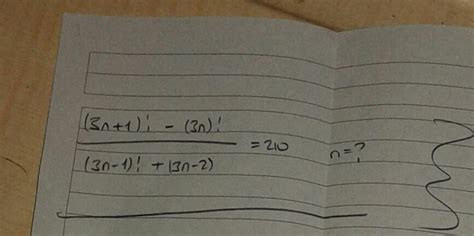 (3n+1)! - (3n)!
(3n-1)! + (3n-2)
= 210 n=?